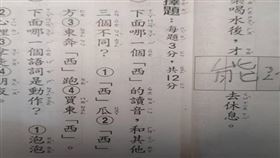 喝水後，才能去休息。
擇題：每題3分，共12分
下面哪一個「西」的讀音，和其他
三個不同？①「西」瓜②「西」
方③東奔「西」跑④買東「西」。
下面哪一個語詞是動作？①泡